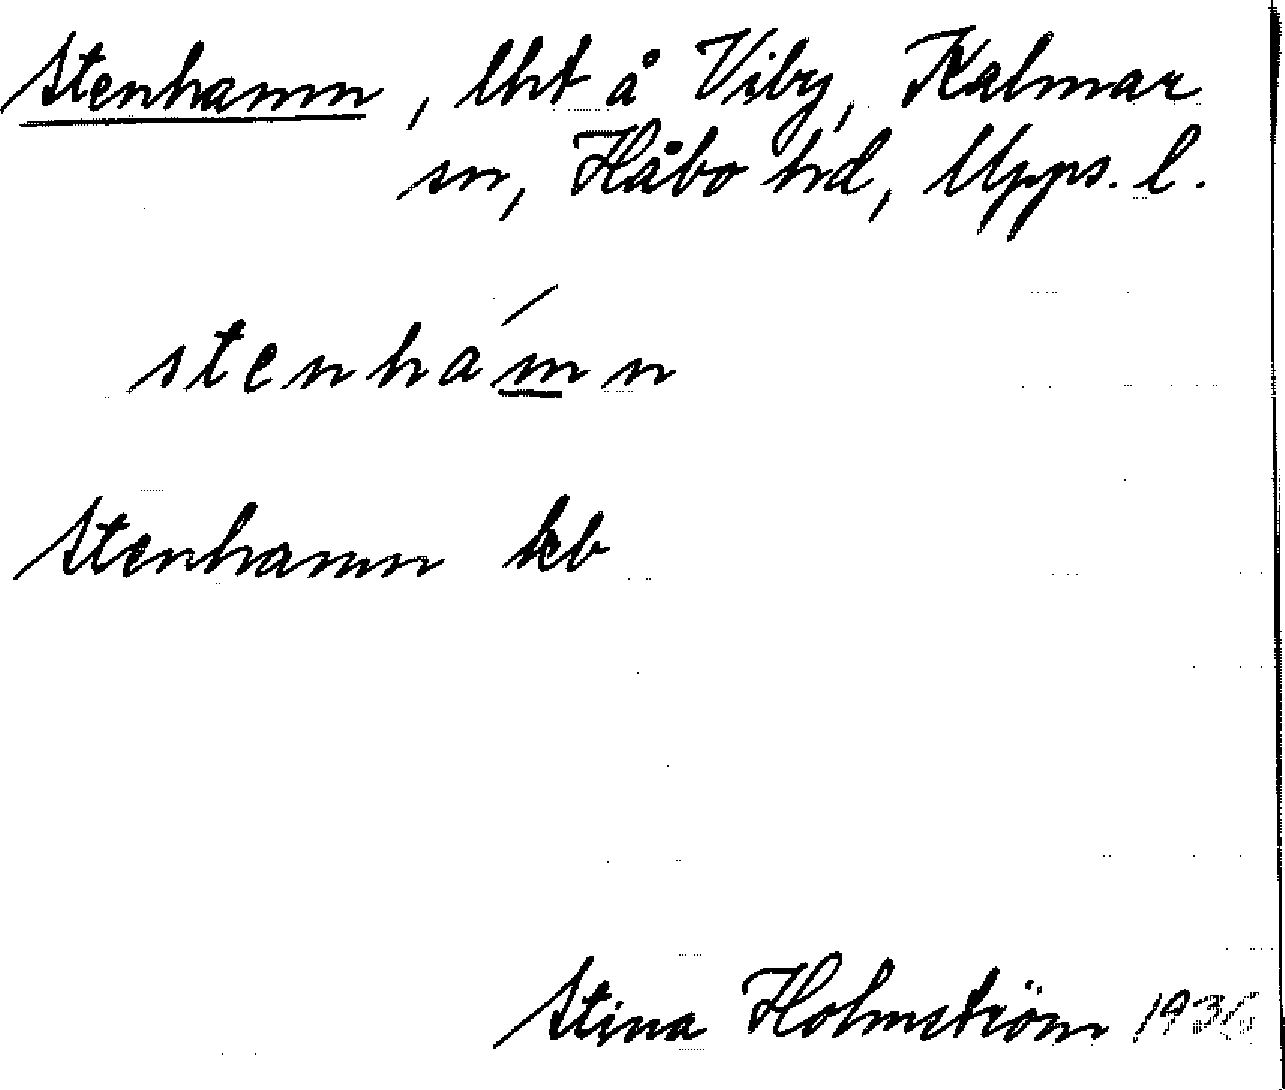 Stenhamn, lht å Viby, Kalmar
sn, Håbo hd, Upps. l.
stenhám̲n
Stenhamn kb
Stina Holmström 1936